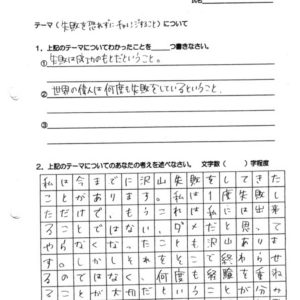 氏名
テーマ（失敗を恐れずにチャレンジすること）について
1．上記のテーマについてわかったことを　　つ書きなさい。
①失敗は成功のもとだということ。
②世界の偉人は何度も失敗をしているということ。
③
2．上記のテーマについてのあなたの考えを述べなさい。　文字数（　　）字程度
私は今までに沢山失敗をしてきた
ことがあります。私は1度失敗し
ただけで、もうこれは私には出来
ることではない、ダメだと思って
やらなくなったことも沢山ありま
す。しかしそれをそこで終わらせ
るのではなく、何度も経験を重ね
ることが大切だということが分か